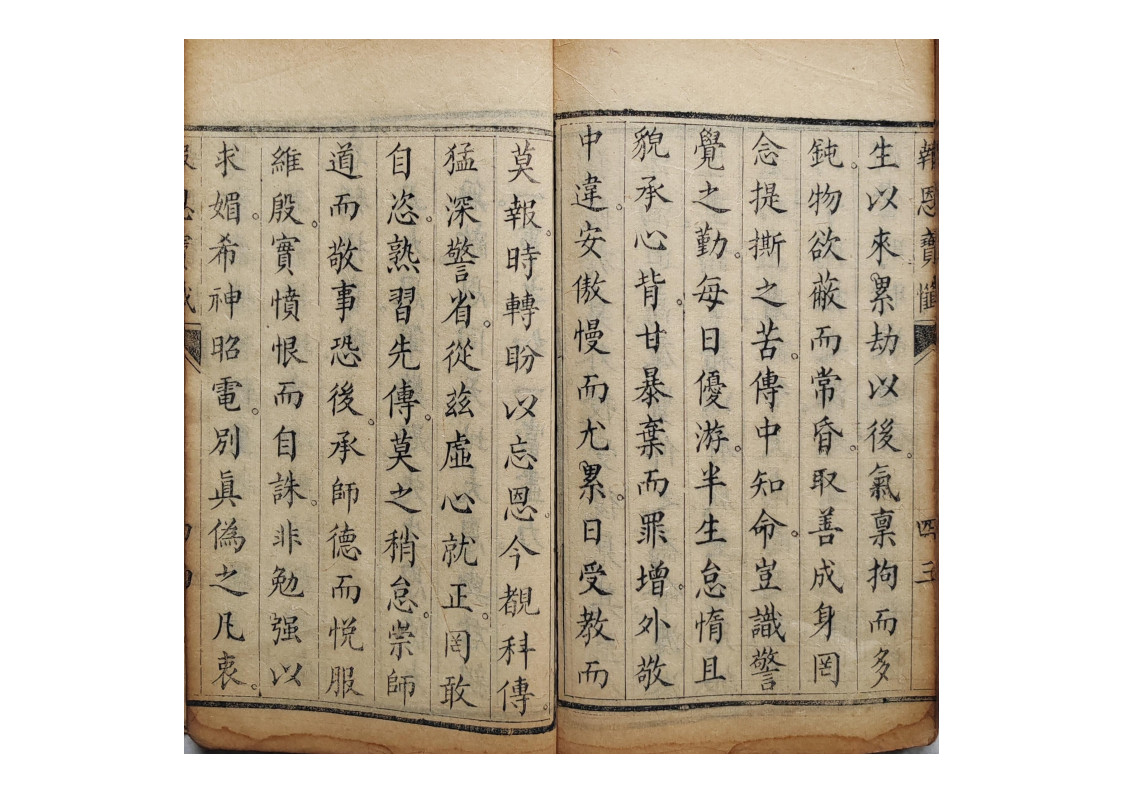 報恩寶懺 四五
生以來累劫以後。氣稟拘而多
鈍。物欲蔽而常昏。取善成身罔
念提撕之苦。傳中知命。豈識警
覺之勤。每日優游。半生怠惰且
貌承心背。甘暴棄而罪增。外敬
中違。安傲慢而尤累。日受教而
莫報。時轉盼以忘恩。今覩科傳。
猛深警省。從茲虛心就正。罔敢
自恣。熟習先傳。莫之稍怠。崇師
道而敬事恐後。承師德而悅服
維殷。實憤恨而自誅。非勉强以
求媚。希神昭電。別眞偽之凡衷。